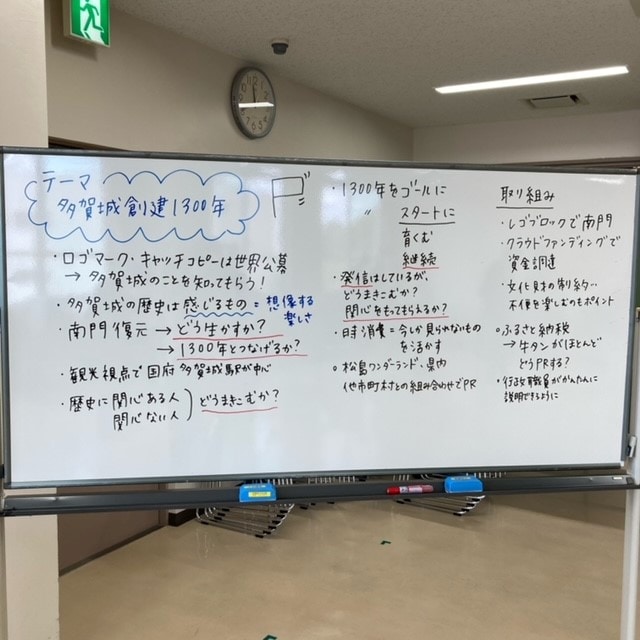 テーマ
多賀城創建1300年
・ロゴマーク・キャッチコピーは世界公募
→ 多賀城のことを知ってもらう!
・多賀城の歴史は感じるもの = 想像する
楽しさ
・南門復元 → どう生かすか?
→ 1300年とつなげるか?
・観光視点で国府多賀城駅が中心
・歴史に関心ある人
関心ない人
どうまきこむか?
・1300年をゴールに
〃 スタートに
育くむ
継続
・発信はしているが、
どうまきこむか?
関心をもってもらえるか?
・日時消費 = 今しか見られないもの
を活かす
○松島ワンダーランド、県内
他市町村との組み合わせでPR
取り組み
・レゴブロックで南門
・クラウドファンディングで
資金調達
・文化財の制約…
不便を楽しむのもポイント
・ふるさと納税
→ 牛タンがほとんど
どうPRする?
・行政職員がかんたんに
説明できるように